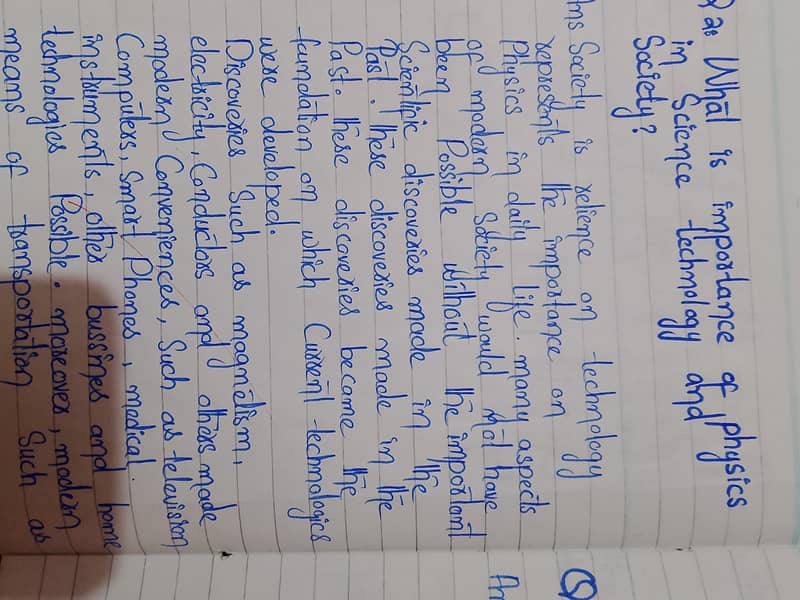 Q2: What is importance of physics
in Science technology and
Society?
Ans Society is relience on technology
represents the importance on
Physics in daily life. many aspects
of modern Society would not have
been Possible without the important
Scientific discoveries made in the
Past. these discoveries made in the
Past. these discoveries became the
foundation on which Current technologies
were developed.
Discoveries Such as magnetism,
electricity, Conductors and others made
modern Conveniences, Such as television
Computers, Smart Phones, medical
instruments, other bussines and home
technologies Possible. moreover, modern
means of transportation Such as
Q
An